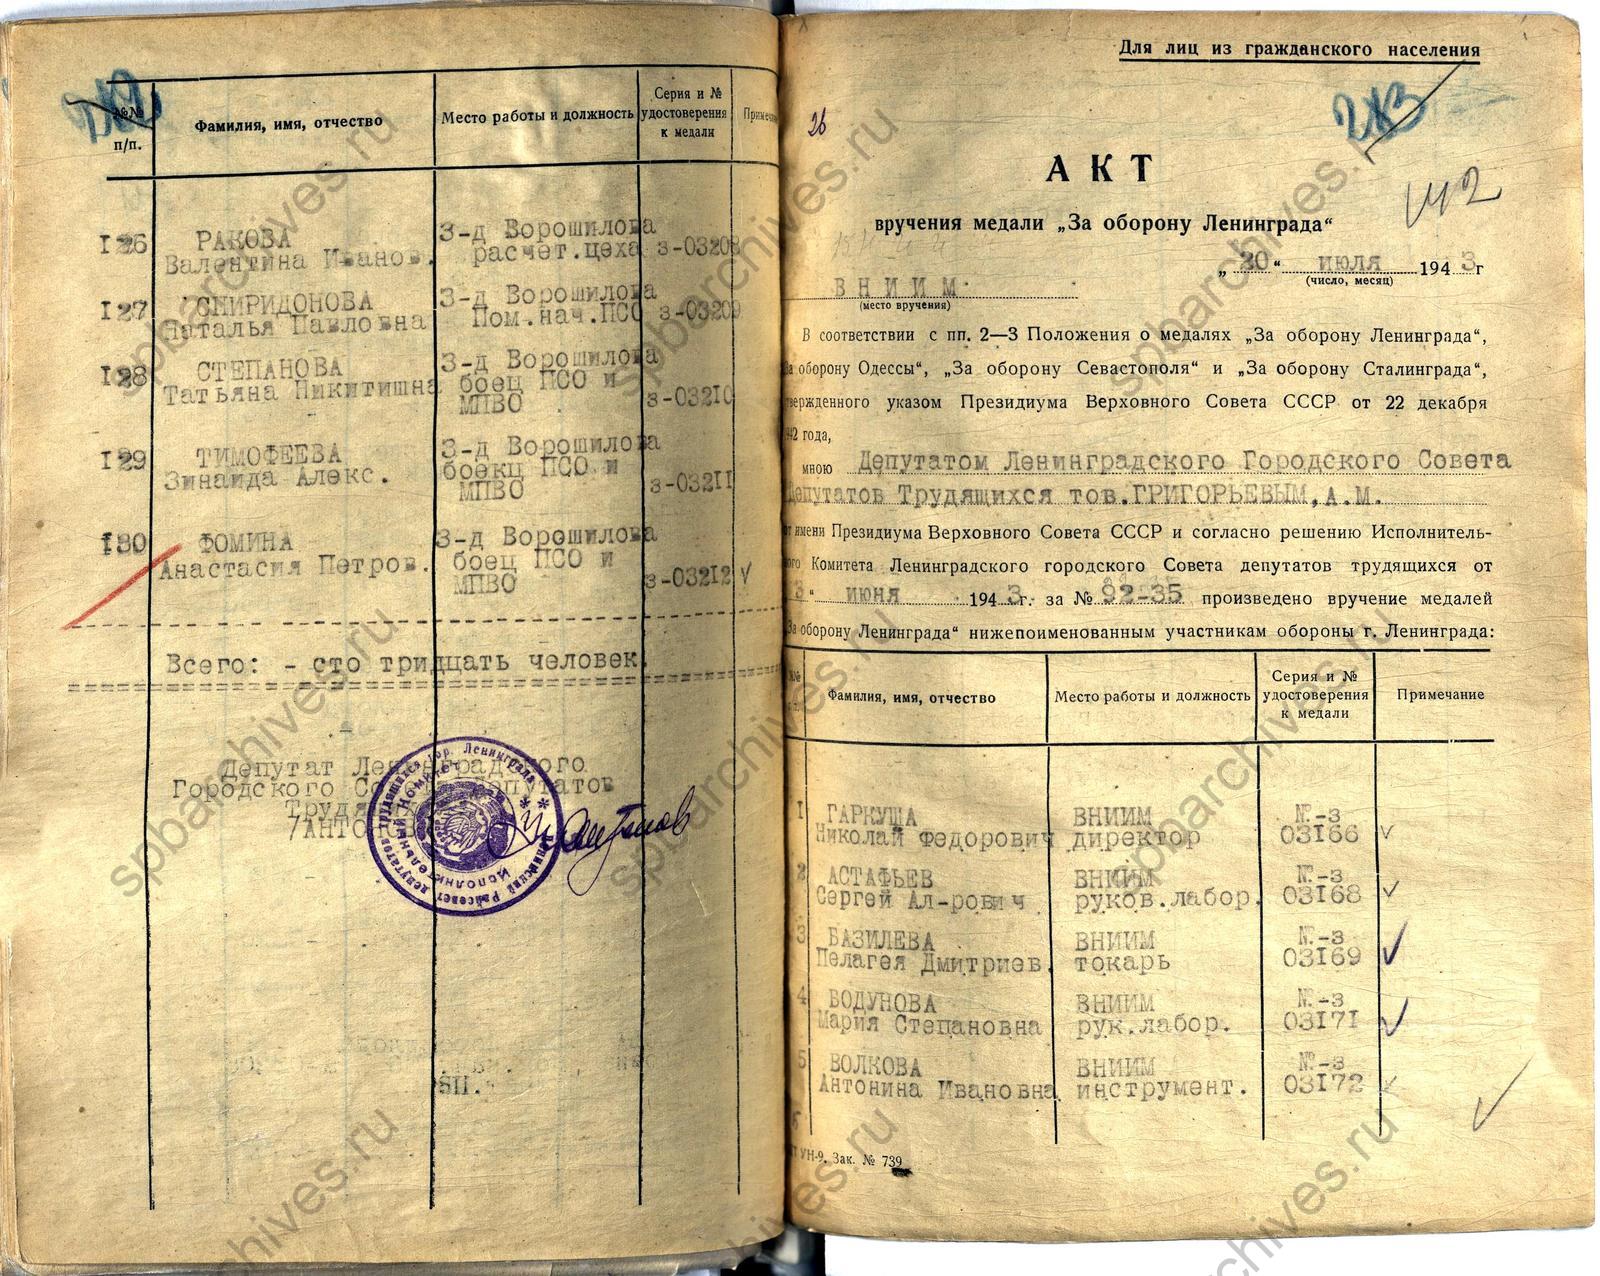 №№ п/п.
Фамилия, имя, отчество
Место работы и должность
Серия и № удостоверения к медали
I26 РАКОВА З-д Ворошилова
Валентина Иванов. расчет.цеха з-03208
I27 СПИРИДОНОВА З-д Ворошилова
Наталья Павловна Пом.нач.ПСО з-03209
I28 СТЕПАНОВА З-д Ворошилова
Татьяна Никитишна боец ПСО и
МПВО з-032I0
I29 ТИМОФЕЕВА З-д Ворошилова
Зинаида Алекс. боекц ПСО и
МПВО з-032II
I30 ФОМИНА З-д Ворошилова
Анастасия Петров. боец ПСО и
МПВО з-032I2 √
Всего: - сто тридцать человек.
Депутат Ленинградского
Городского Депутатов
ЗП.
Для лиц из гражданского населения
26
142
АКТ
вручения медали „За оборону Ленинграда“
„ 30 “ июля 1943 г
(число, месяц)
ВНИИМ
(место вручения)
В соответствии с пп. 2—3 Положения о медалях „За оборону Ленинграда“,
За оборону Одессы“, „За оборону Севастополя“ и „За оборону Сталинграда“,
твержденного указом Президиума Верховного Совета СССР от 22 декабря
942 года,
мною Депутатом Ленинградского Городского Совета
Депутатов Трудящихся тов.ГРИГОРЬЕВЫМ,А.М.
от имени Президиума Верховного Совета СССР и согласно решению Исполнитель-
ного Комитета Ленинградского городского Совета депутатов трудящихся от
3 “ июня 1943 г. за № 92-35 произведено вручение медалей
„За оборону Ленинграда“ нижепоименованным участникам обороны г. Ленинграда:
Фамилия, имя, отчество
Место работы и должность
Серия и № удостоверения к медали
Примечание
1 ГАРКУША ВНИИМ №-з
Николай Федорович директор 03I66 √
2 АСТАФЬЕВ ВНИИМ №-з
Сергей Ал-рович руков.лабор. 03I68 √
3 БАЗИЛЕВА ВНИИМ №-з
Пелагея Дмитриев. токарь 03I69 √
4 ВОДУНОВА ВНИИМ №-з
Мария Степановна рук.лабор. 03I7I √
5 ВОЛКОВА ВНИИМ №-з
Антонина Ивановна инструмент. 03I72 √
УН-9. Зак. № 739
spbarchives.ru